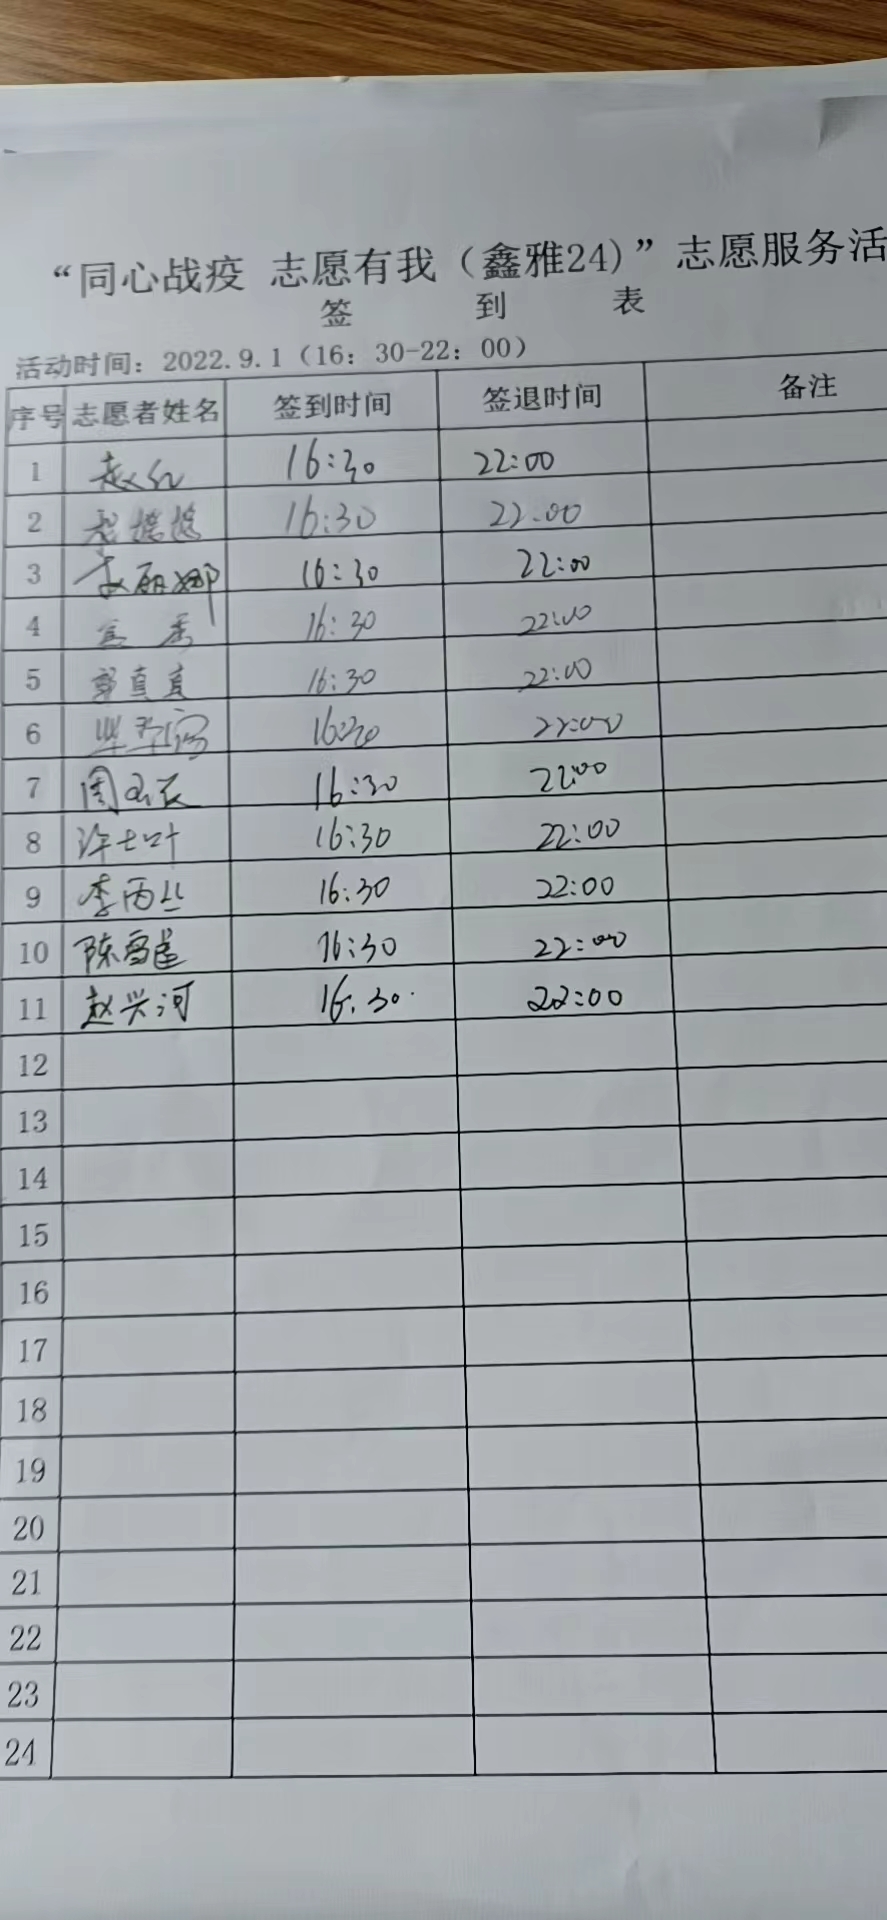 “同心战疫 志愿有我（鑫雅24）”志愿服务活
签 到 表
活动时间：2022.9.1（16：30-22：00）
序号 志愿者姓名 签到时间 签退时间 备注
1 赵红 16:30 22:00
2 16:30 22:00
3 赵丽娜 16:30 22:00
4 16:30 22:00
5 郭真真 16:30 22:00
6 16:30 22:00
7 周 16:30 22:00
8 许七叶 16:30 22:00
9 李丙丛 16:30 22:00
10 陈雪 16:30 22:00
11 赵兴河 16:30 22:00
12
13
14
15
16
17
18
19
20
21
22
23
24